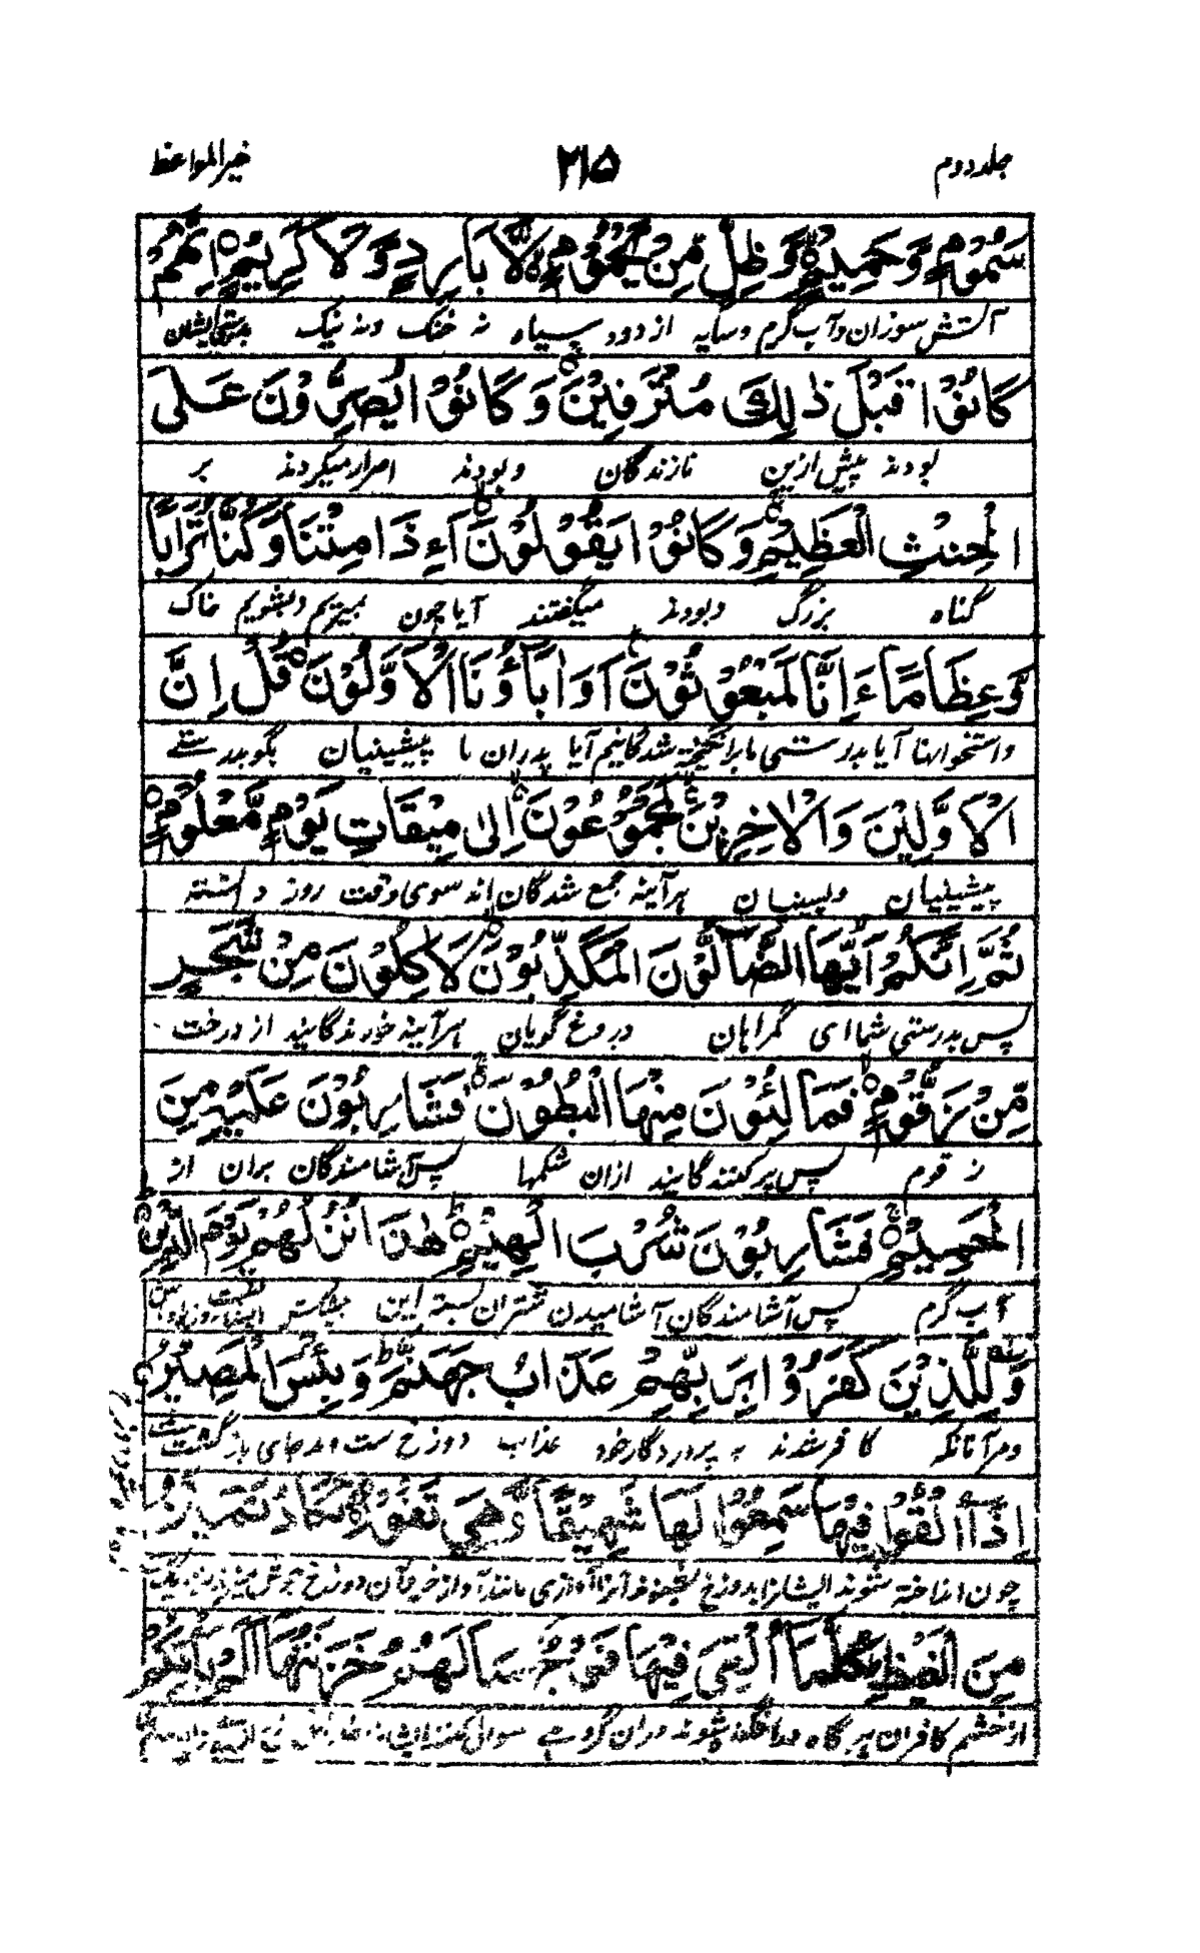 جلد دوم ۲۱۵ خیر المواعظ
سَمُوْمٍ وَّحَمِيْمٍ وَّظِلٍّ مِّنْ يَّحْمُوْمٍ لَّا بَارِدٍ وَّلَا كَرِيْمٍ اِنَّهُمْ
آتش سوزان و آب گرم و سایه از دود سیاه نه خنک و نه نیک بدرستیکه ایشان
كَانُوْا قَبْلَ ذٰلِكَ مُتْرَفِيْنَ وَكَانُوْا يُصِرُّوْنَ عَلَى
بودند پیش ازین نازندگان و بودند اصرار میکردند بر
الْحِنْثِ الْعَظِيْمِ وَكَانُوْا يَقُوْلُوْنَ اَءِذَا مِتْنَا وَكُنَّا تُرَابًا
گناه بزرگ و بودند میگفتند آیا چون بمیریم و بشویم خاک
وَّعِظَامًا ءَاِنَّا لَمَبْعُوْثُوْنَ اَوَاٰبَآؤُنَا الْاَوَّلُوْنَ قُلْ اِنَّ
و استخوانها آیا بدرستی ما برانگیخته شدگانیم آیا پدران ما پیشینیان بگو بدرستے
الْاَوَّلِيْنَ وَالْاٰخِرِيْنَ لَمَجْمُوْعُوْنَ اِلٰى مِيْقَاتِ يَوْمٍ مَّعْلُوْمٍ
پیشینیان و پسینیان هر آینه جمع شدگان اند سوی وقت روز دانسته
ثُمَّ اِنَّكُمْ اَيُّهَا الضَّآلُّوْنَ الْمُكَذِّبُوْنَ لَاٰكِلُوْنَ مِنْ شَجَرٍ
پس بدرستی شما ای گمراهان دروغ گویان هر آینه خورندگانید از درخت
مِّنْ زَقُّوْمٍ فَمَالِئُوْنَ مِنْهَا الْبُطُوْنَ فَشَارِبُوْنَ عَلَيْهِ مِنَ
زقوم پس پر کنندگانید ازان شکمها پس آشامندگان بران از
الْحَمِيْمِ فَشَارِبُوْنَ شُرْبَ الْهِيْمِ هٰذَا نُزُلُهُمْ يَوْمَ الدِّيْنِ
آب گرم پس آشامندگان آشامیدن شتران تشنه این پیشکش
وَلِلَّذِيْنَ كَفَرُوْا بِرَبِّهِمْ عَذَابُ جَهَنَّمَ وَبِئْسَ الْمَصِيْرُ
و مر آنانکه کافر شدند به پروردگار خود عذاب دوزخ ست و بد جای بازگشت ست
اِذَا اُلْقُوْا فِيْهَا سَمِعُوْا لَهَا شَهِيْقًا وَّهِيَ تَفُوْرُ تَكَادُ تَمَيَّزُ
چون انداخته شوند ایشانرا بدوزخ بشنوند آنرا آوازی مانند آواز خر و آن دوزخ جوش میزند
مِنَ الْغَيْظِ كُلَّمَا اُلْقِيَ فِيْهَا فَوْجٌ سَاَلَهُمْ خَزَنَتُهَا اَلَمْ يَاْتِكُمْ
از خشم کافران هر گاه که افگنده شوند دران گروهے سوال کنند ایشانرا